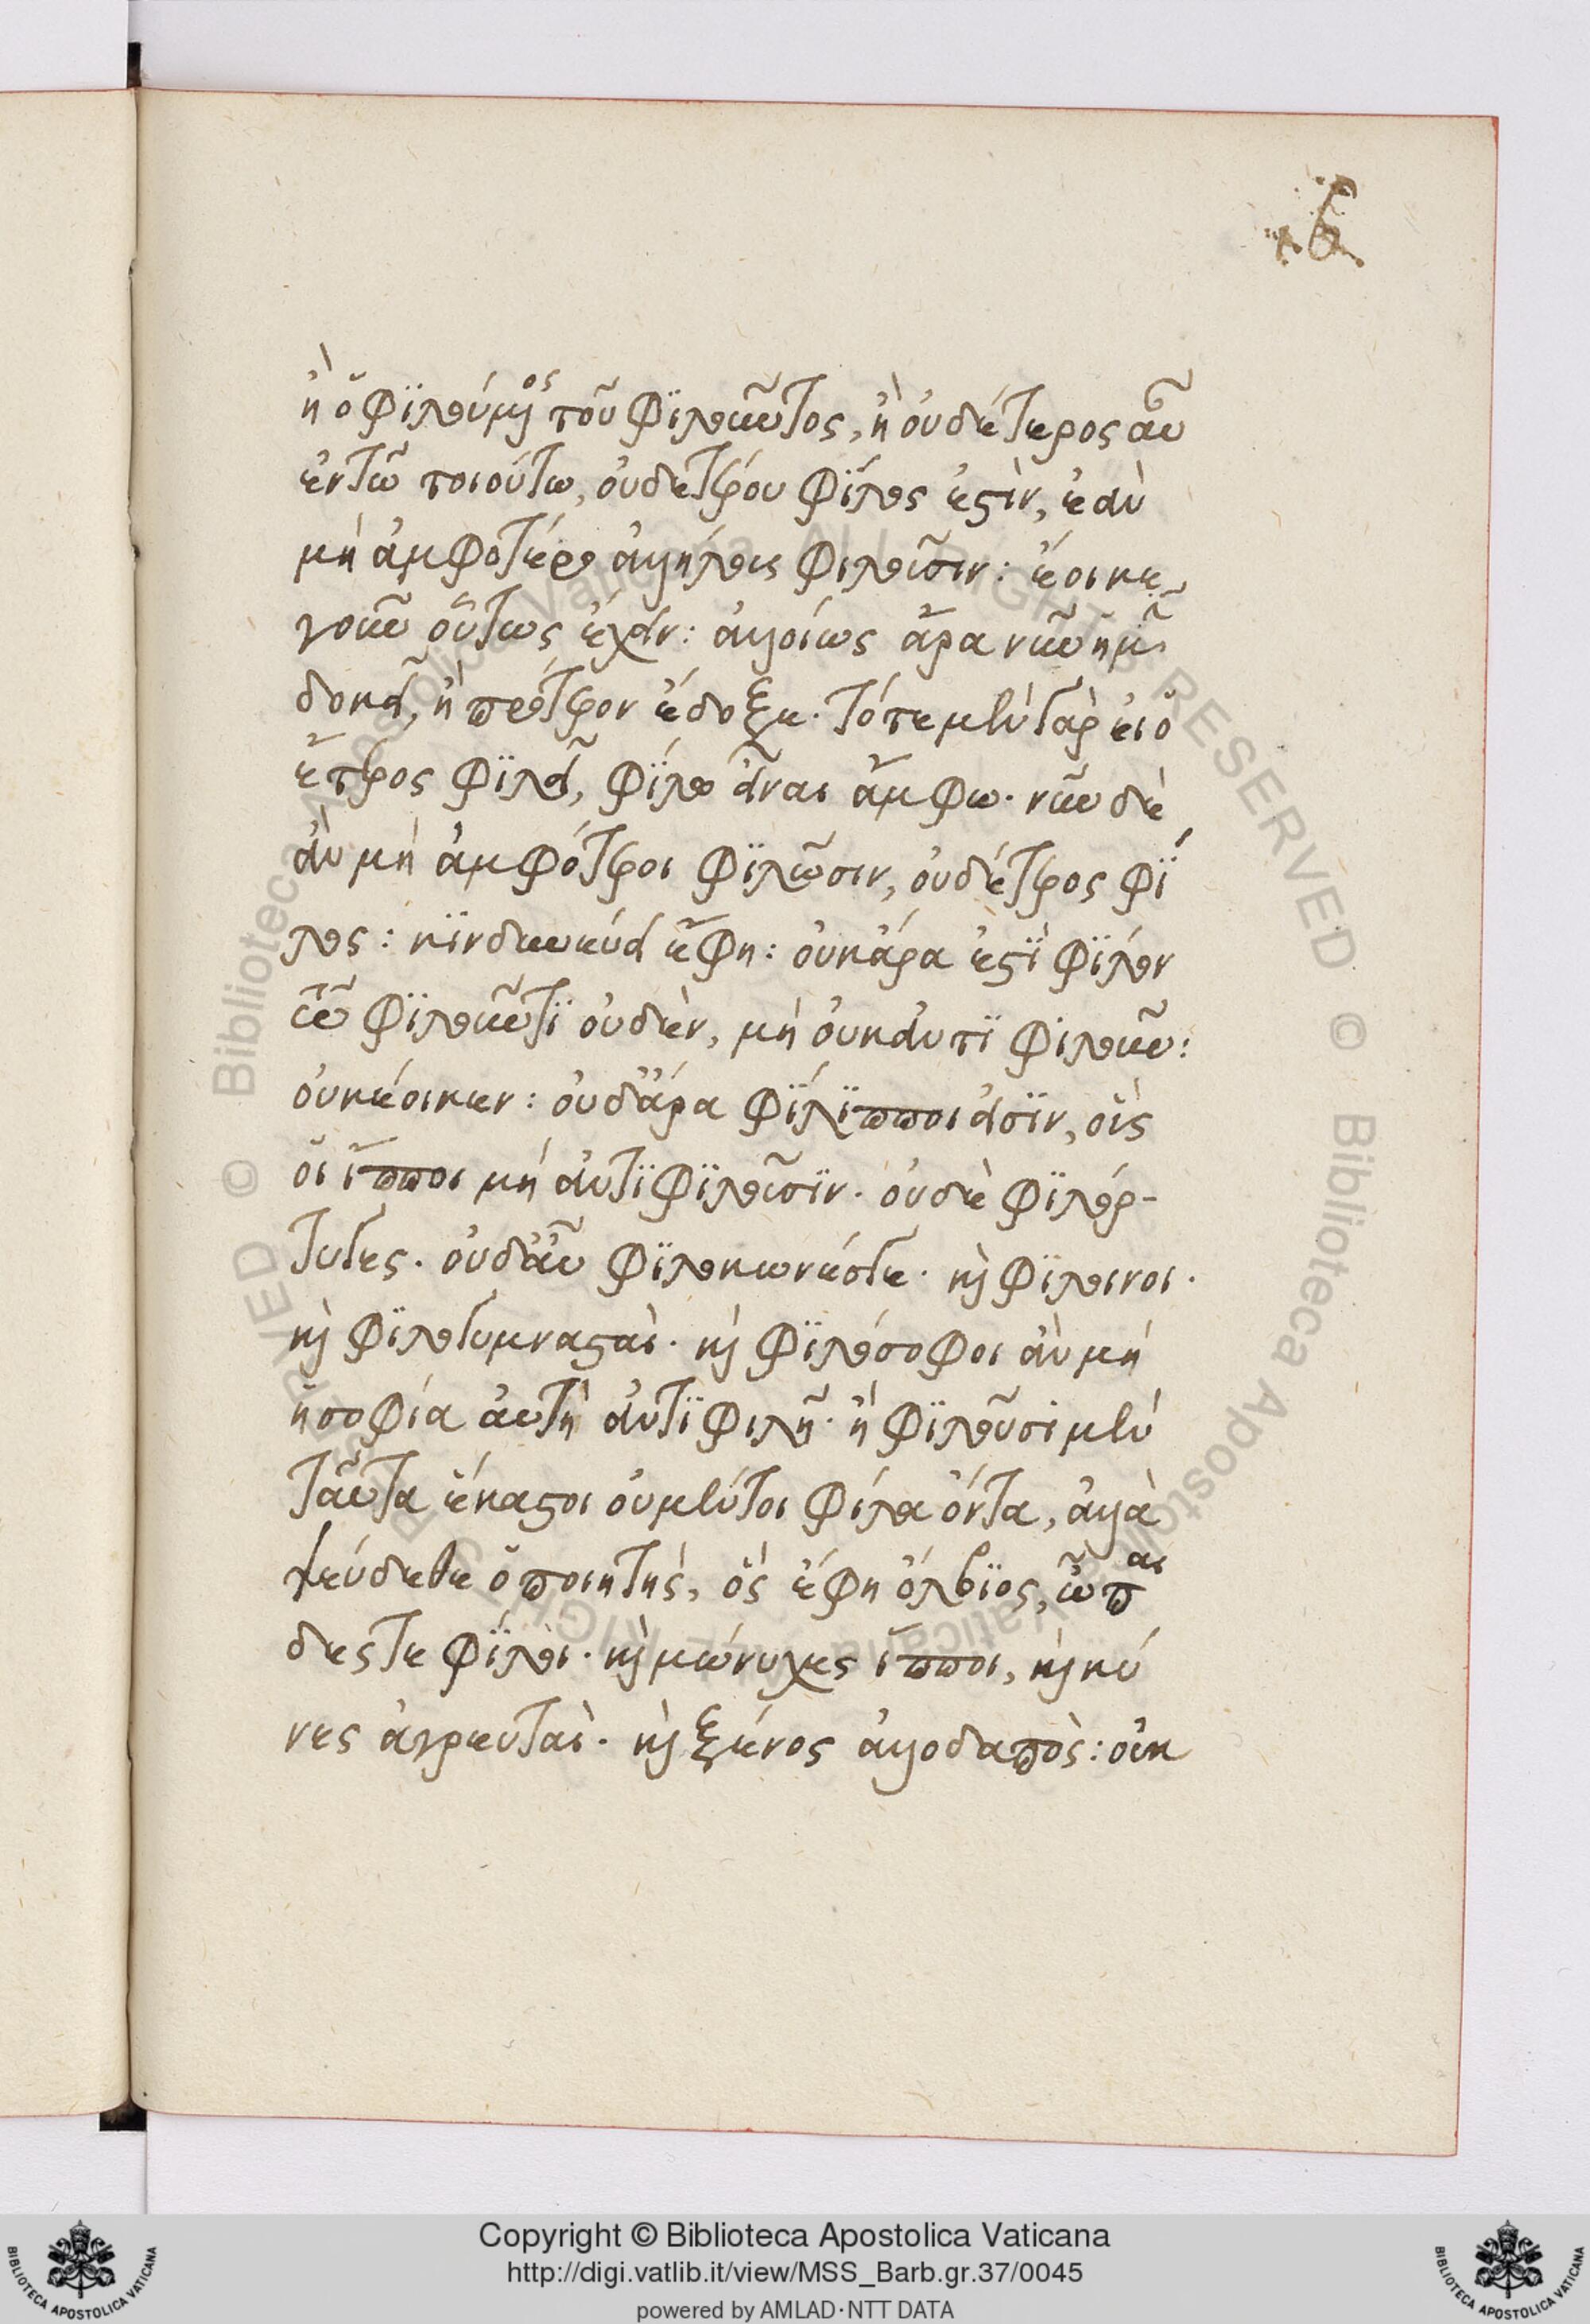 ἢ ὁ φιλούμενος τοῦ φιλοῦντος, ἢ οὐδέτερος αὖ
ἐν τῶ τοιούτω, οὐδετέρου φίλος ἐστὶν, ἐὰν
μὴ ἀμφότεροι ἀλλήλους φιλοῦσιν: ἔοικε
γοῦν οὕτως ἔχειν: ἀλλοίως ἄρα νῦν ἡμῖν
δοκεῖ, ἢ πρότερον ἔδοξε· τότε μὲν γὰρ εἰ ὁ
ἕτερος φιλεῖ, φίλω εἶναι ἄμφω· νῦν δὲ
ἂν μὴ ἀμφότεροι φιλῶσιν, οὐδέτερος φί
λος: κινδυνεύει ἔφη: οὐκ ἄρα ἐστὶ φίλον
τῶ φιλοῦντι οὐδὲν, μὴ οὐκ ἀντιφιλοῦν:
οὐκ ἔοικεν: οὐδ' ἄρα φίλιπποι εἰσὶν, οὓς
οἱ ἵπποι μὴ ἀντιφιλοῦσιν· οὐδὲ φιλόρ-
τυγες· οὐδ' αὖ φιλοκυνές τε· καὶ φίλοινοι·
καὶ φιλογυμνασταὶ· καὶ φιλόσοφοι ἂν μὴ
ἡ σοφία αὐτὴ ἀντιφιλῆ· ἢ φιλοῦσι μὲν
ταῦτα ἕκαστοι οὐ μέντοι φίλα ὄντα, ἀλλὰ
ψεύδεθ' ὁ ποιητὴς, ὃς ἔφη ὄλβιος, ᾧ παῖ
δες τε φίλοι· καὶ μώνυχες ἵπποι, καὶ κύ
νες ἀγρευταὶ· καὶ ξένος ἀλλοδαπὸς: οὐκ
Copyright © Biblioteca Apostolica Vaticana
http://digi.vatlib.it/view/MSS_Barb.gr.37/0045
powered by AMLAD·NTT DATA